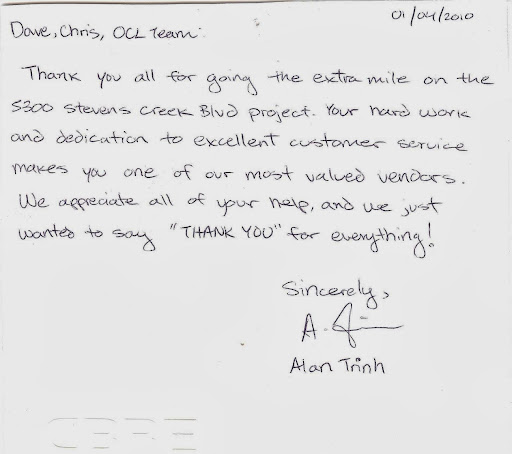 01/04/2010
Dave, Chris, OCL Team:
Thank you all for going the extra mile on the
5300 Stevens Creek Blvd project. Your hard work
and dedication to excellent customer service
makes you one of our most valued vendors.
We appreciate all of your help, and we just
wanted to say "THANK YOU" for everything!
Sincerely,
Alan Trinh
CBRE